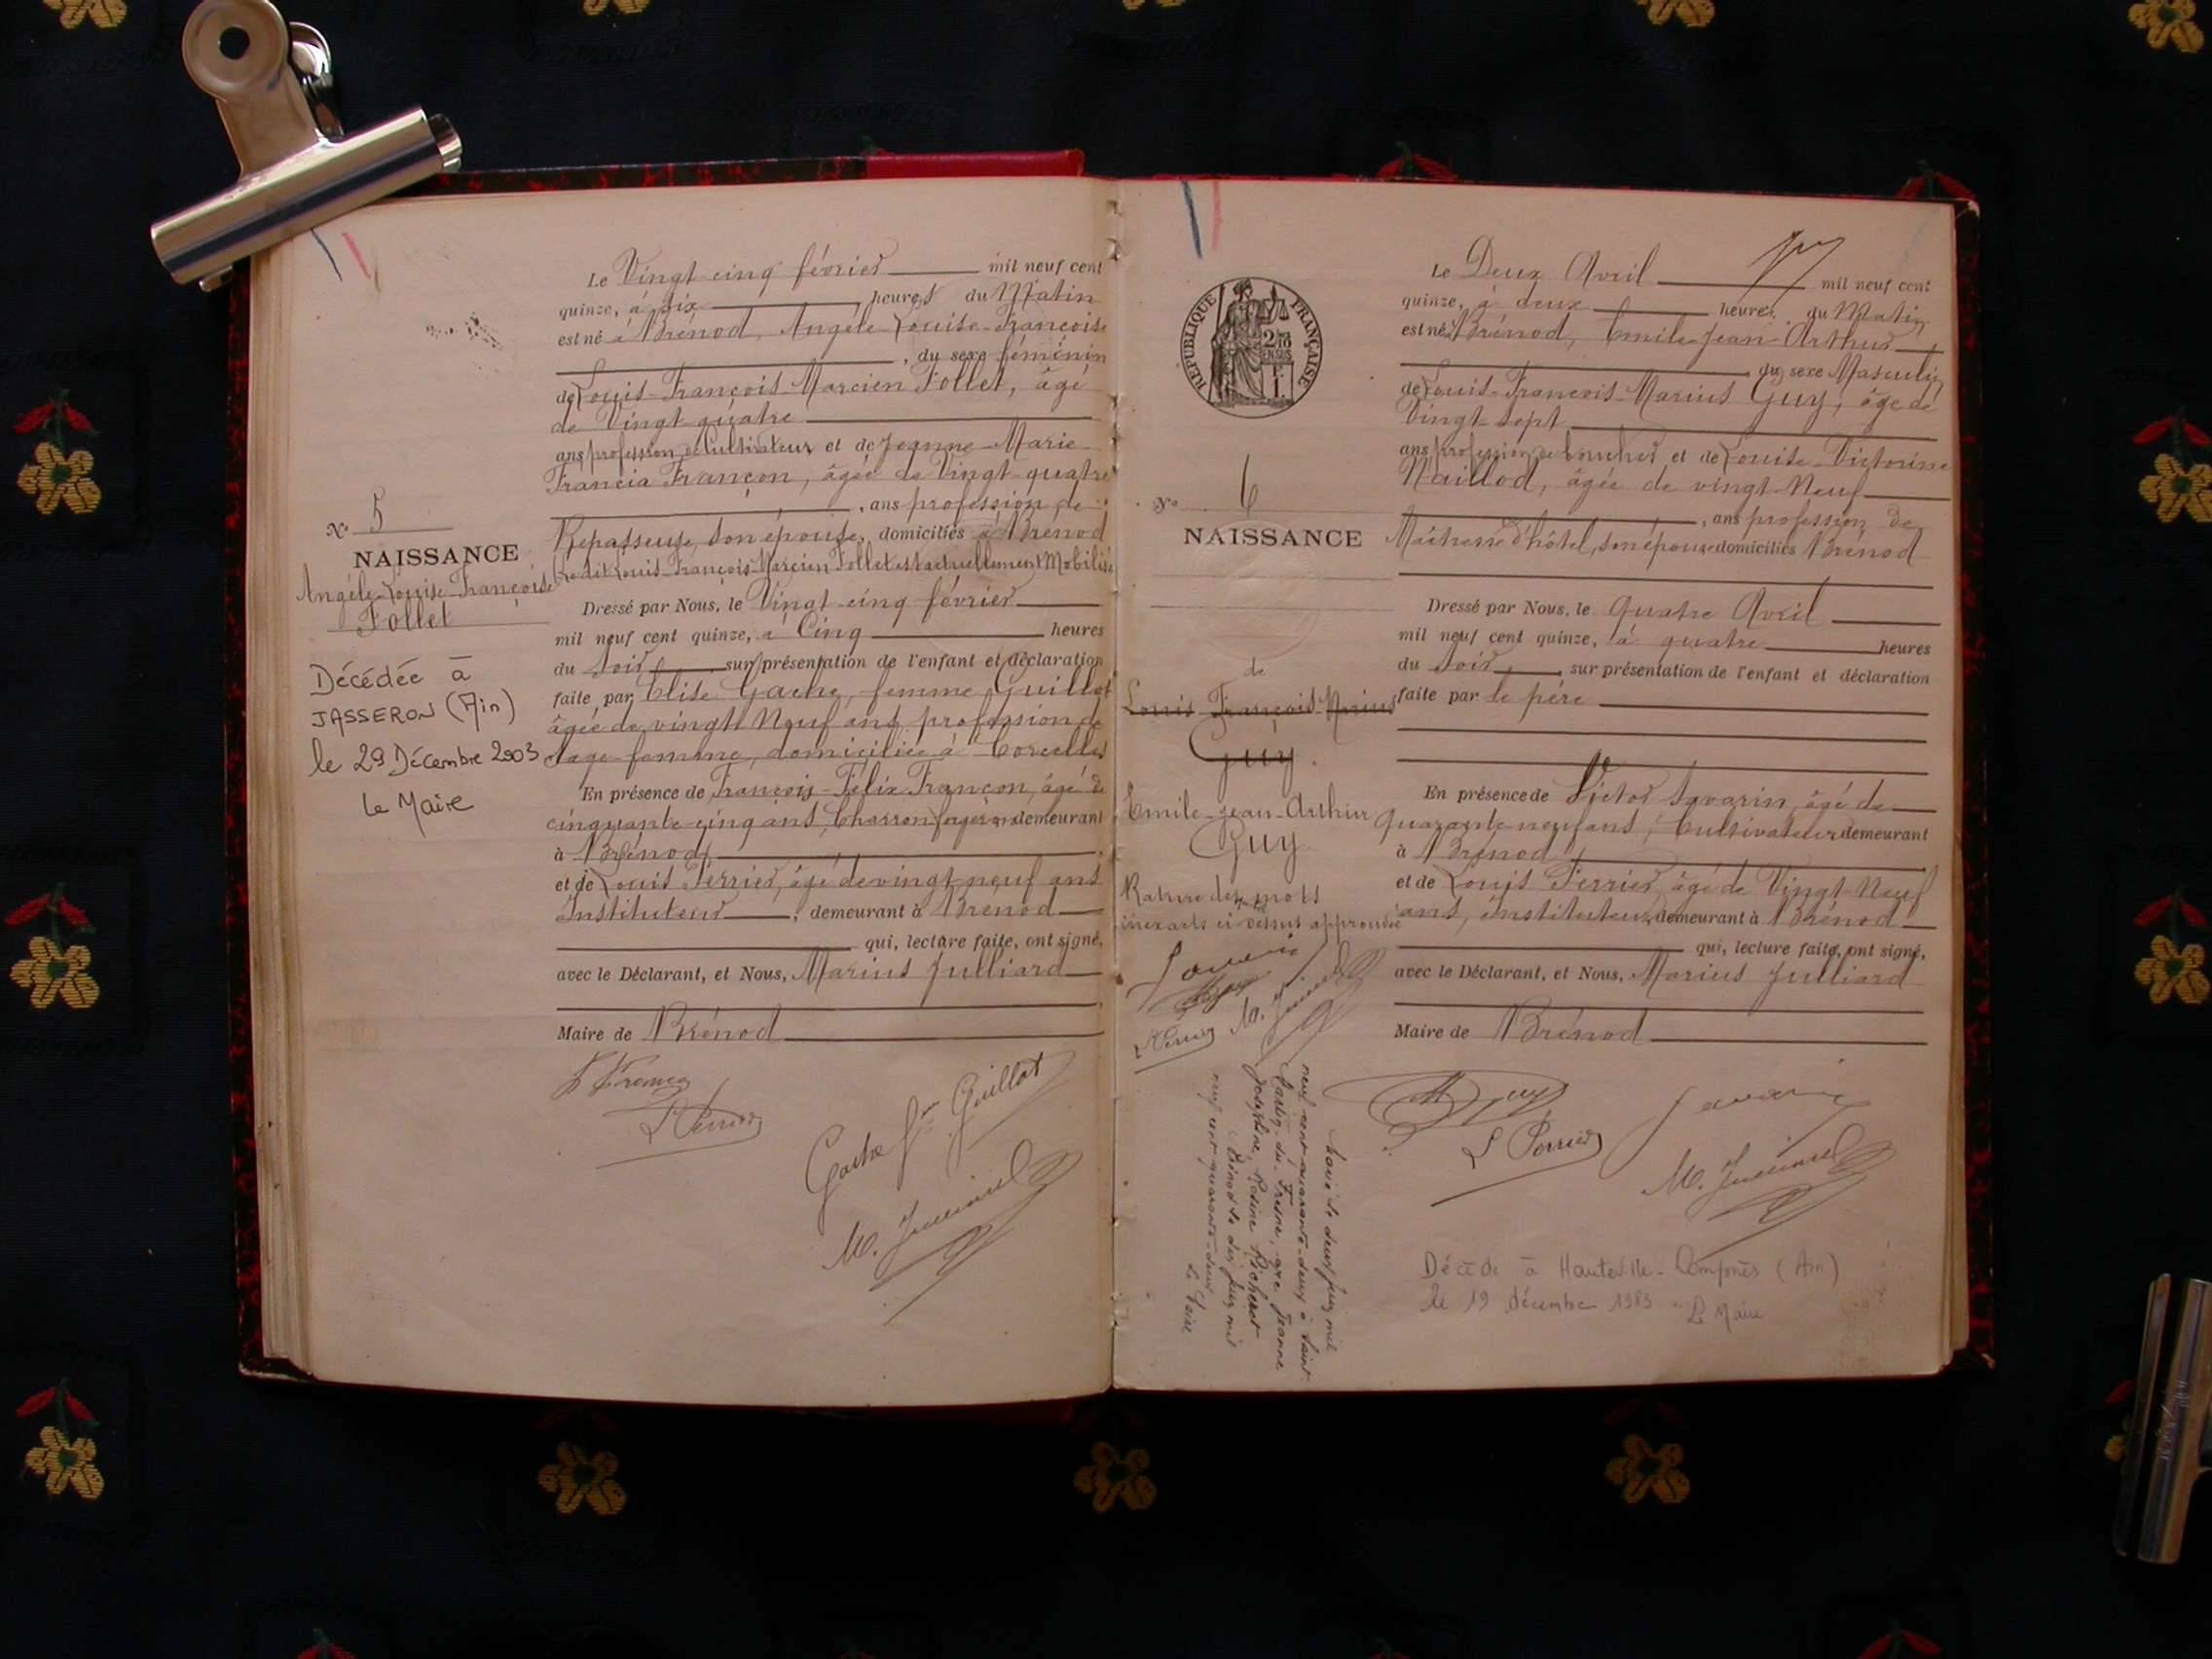 N° 5
NAISSANCE
Angèle-Louise-Françoise
Follet
Décédée à
JASSERON (Ain)
le 29 Décembre 2003
Le Maire
Le Vingt-cinq février mil neuf cent
quinze, à six heures du Matin
est né à Brénod, Angèle-Louise-Françoise
, du sexe féminin
de Louis-François-Marcien Follet, âgé
de Vingt quatre
ans profession de Cultivateur et de Jeanne-Marie
Francia Françon, âgée de Vingt-quatre
, ans profession de
Repasseuse, son épouse, domiciliés à Brénod
Le dit Louis-François-Marcien Follet est actuellement Mobilisé
Dressé par Nous, le Vingt-cinq février
mil neuf cent quinze, à Cinq heures
du soir, sur présentation de l'enfant et déclaration
faite par Elise Gache, femme Guillot
âgée de vingt Neuf ans profession de
sage-femme, domiciliée à Corcelles
En présence de François-Félix Françon, âgé de
cinquante cinq ans, Charron forgeron demeurant
à Brénod
et de Louis Perrier, âgé de vingt-neuf ans
Instituteur, demeurant à Brénod
qui, lecture faite, ont signé,
avec le Déclarant, et Nous, Marius Julliard
Maire de Brénod
L Perrier
Gache fme Guillot
M. Julliard
RÉPUBLIQUE FRANÇAISE
2/10
EN SUS
N° 6
NAISSANCE
de
Louis-François-Marius
Guy.
Emile-Jean-Arthur
Guy
Rature des mots
inexacts ci-dessus approuvée
Savarin
L Perrier M. Julliard
Marié le deux juin mil
neuf cent quarante-deux à Saint
Martin-du-Fresne, avec Jeanne
Joséphine, Rosine Richerot
Brénod le dix juin mil
neuf cent quarante-deux
Le Maire
Le Deux Avril mil neuf cent
quinze, à deux heures du Matin
est né à Brénod, Emile-Jean-Arthur
du sexe Masculin
de Louis-François-Marius Guy, âgé de
Vingt-Sept
ans profession de boucher et de Louise-Victorine
Naillod, âgée de vingt-Neuf
, ans profession de
Maîtresse d'hôtel, son épouse domiciliés Brénod
Dressé par Nous, le Quatre Avril
mil neuf cent quinze, à quatre heures
du soir, sur présentation de l'enfant et déclaration
faite par le père
En présence de Victor Savarin, âgé de
quarante-neuf ans, Cultivateur demeurant
à Brénod
et de Louis Perrier, âgé de Vingt-Neuf
ans, instituteur, demeurant à Brénod
qui, lecture faite, ont signé,
avec le Déclarant, et Nous, Marius Julliard
Maire de Brénod
M Guy
Savarin
L Perrier
M. Julliard
Décédé à Hauteville-Lompnès (Ain)
le 19 décembre 1983
Le Maire